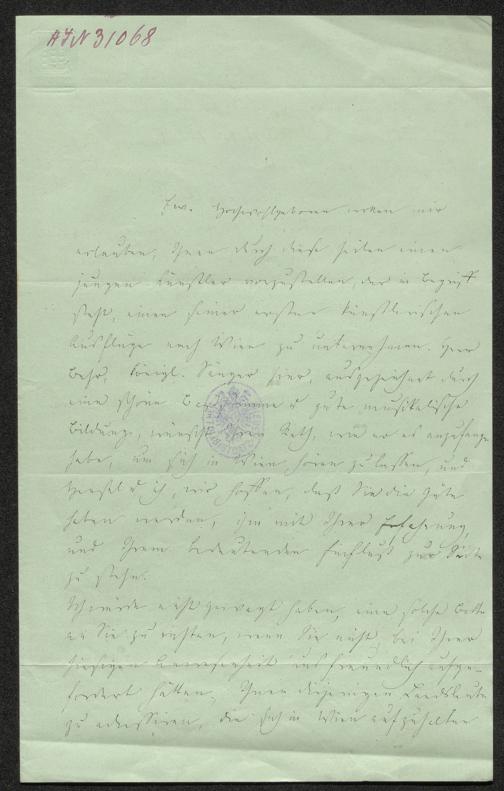 AJN 31068
Ew. Hochwohlgeboren wollen mir
erlauben, Ihnen durch diese Zeilen einen
jungen Künstler vorzustellen, der im Begriff
steht, einen seiner ersten künstlerischen
Ausflüge nach Wien zu unternehmen. Herr
Behr, königl. Sänger hier, ausgezeichnet durch
eine schöne u gute musikalische
Bildung, wünscht Ihren Rath, wie er es anzufangen
habe, um sich in Wien hören zu lassen, und
u ich, wir hoffen, daß Sie die Güte
haben werden, ihm mit Ihrer Erfahrung
und Ihrem bedeutenden Einfluß zur Seite
zu stehn.
Ich würde nicht gewagt haben, eine solche Bitte
an Sie zu richten, wenn Sie nicht, bei Ihrer
hiesigen Anwesenheit uns freundlich aufge-
fordert hätten, Ihnen diejenigen Landsleute
zu adressiren, die sich in Wien aufzuhalten